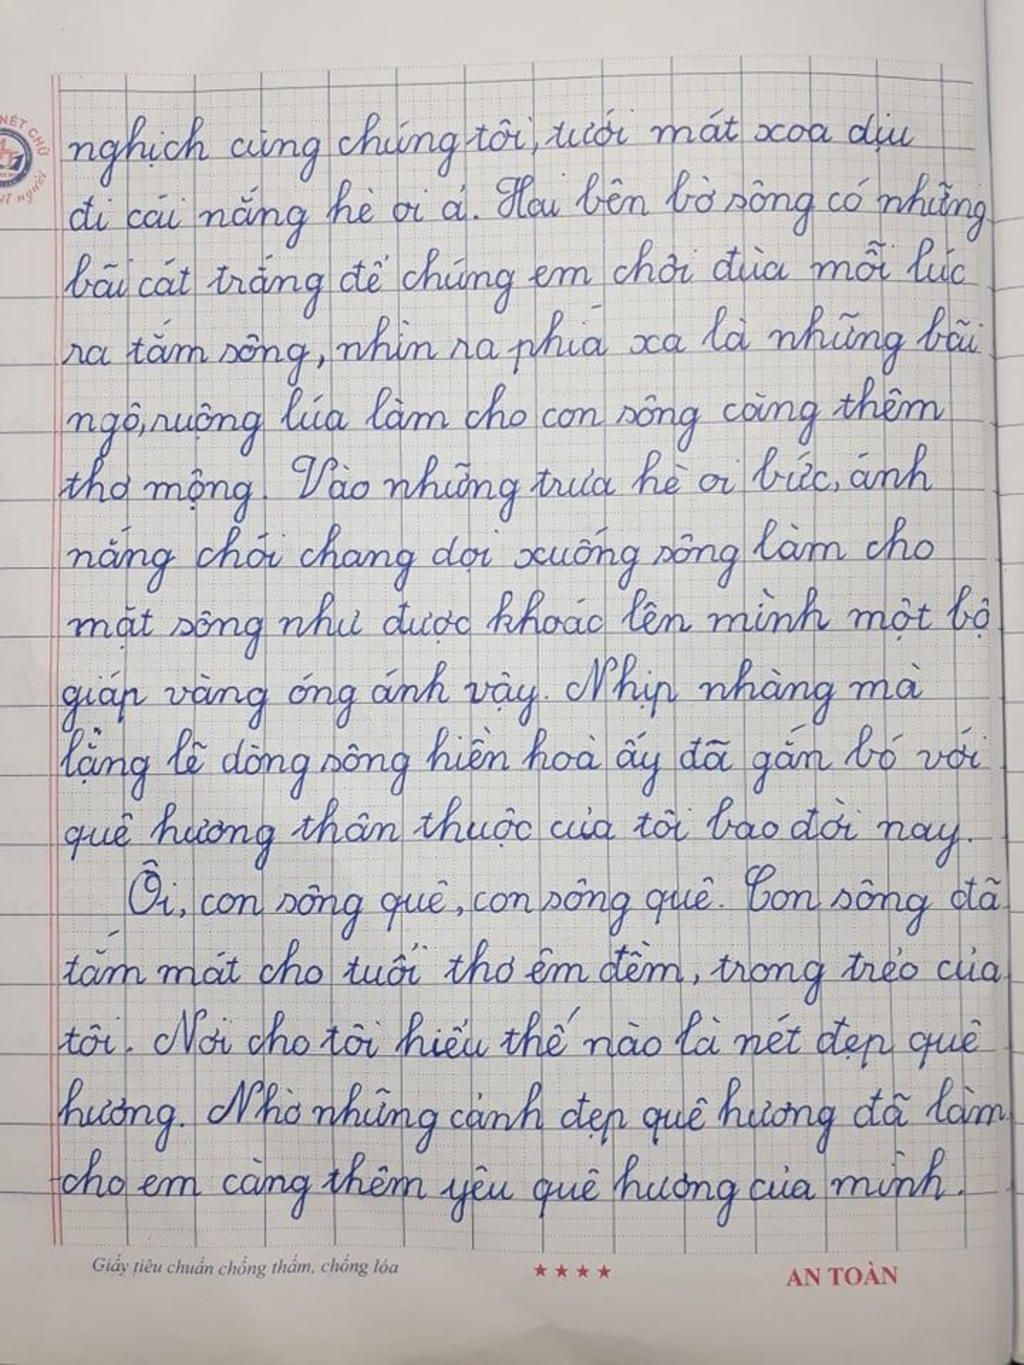 NÉT CHỮ
nết người
nghịch cùng chúng tôi, tưới mát xoa dịu
đi cái nắng hè oi ả. Hai bên bờ sông có những
bãi cát trắng để chúng em chơi đùa mỗi lúc
ra tắm sông, nhìn ra phía xa là những bãi
ngô, ruộng lúa làm cho con sông càng thêm
thơ mộng. Vào những trưa hè oi bức, ánh
nắng chói chang dọi xuống sông làm cho
mặt sông như được khoác lên mình một bộ
giáp vàng óng ánh vậy. Nhịp nhàng mà
lặng lẽ dòng sông hiền hoà ấy đã gắn bó với
quê hương thân thuộc của tôi bao đời nay.
Ôi, con sông quê, con sông quê. Con sông đã
tắm mát cho tuổi thơ êm đềm, trong trẻo của
tôi. Nơi cho tôi hiểu thế nào là nét đẹp quê
hương. Nhờ những cảnh đẹp quê hương đã làm
cho em càng thêm yêu quê hương của mình.
Giấy tiêu chuẩn chống thấm, chống lóa
★★★★
AN TOÀN